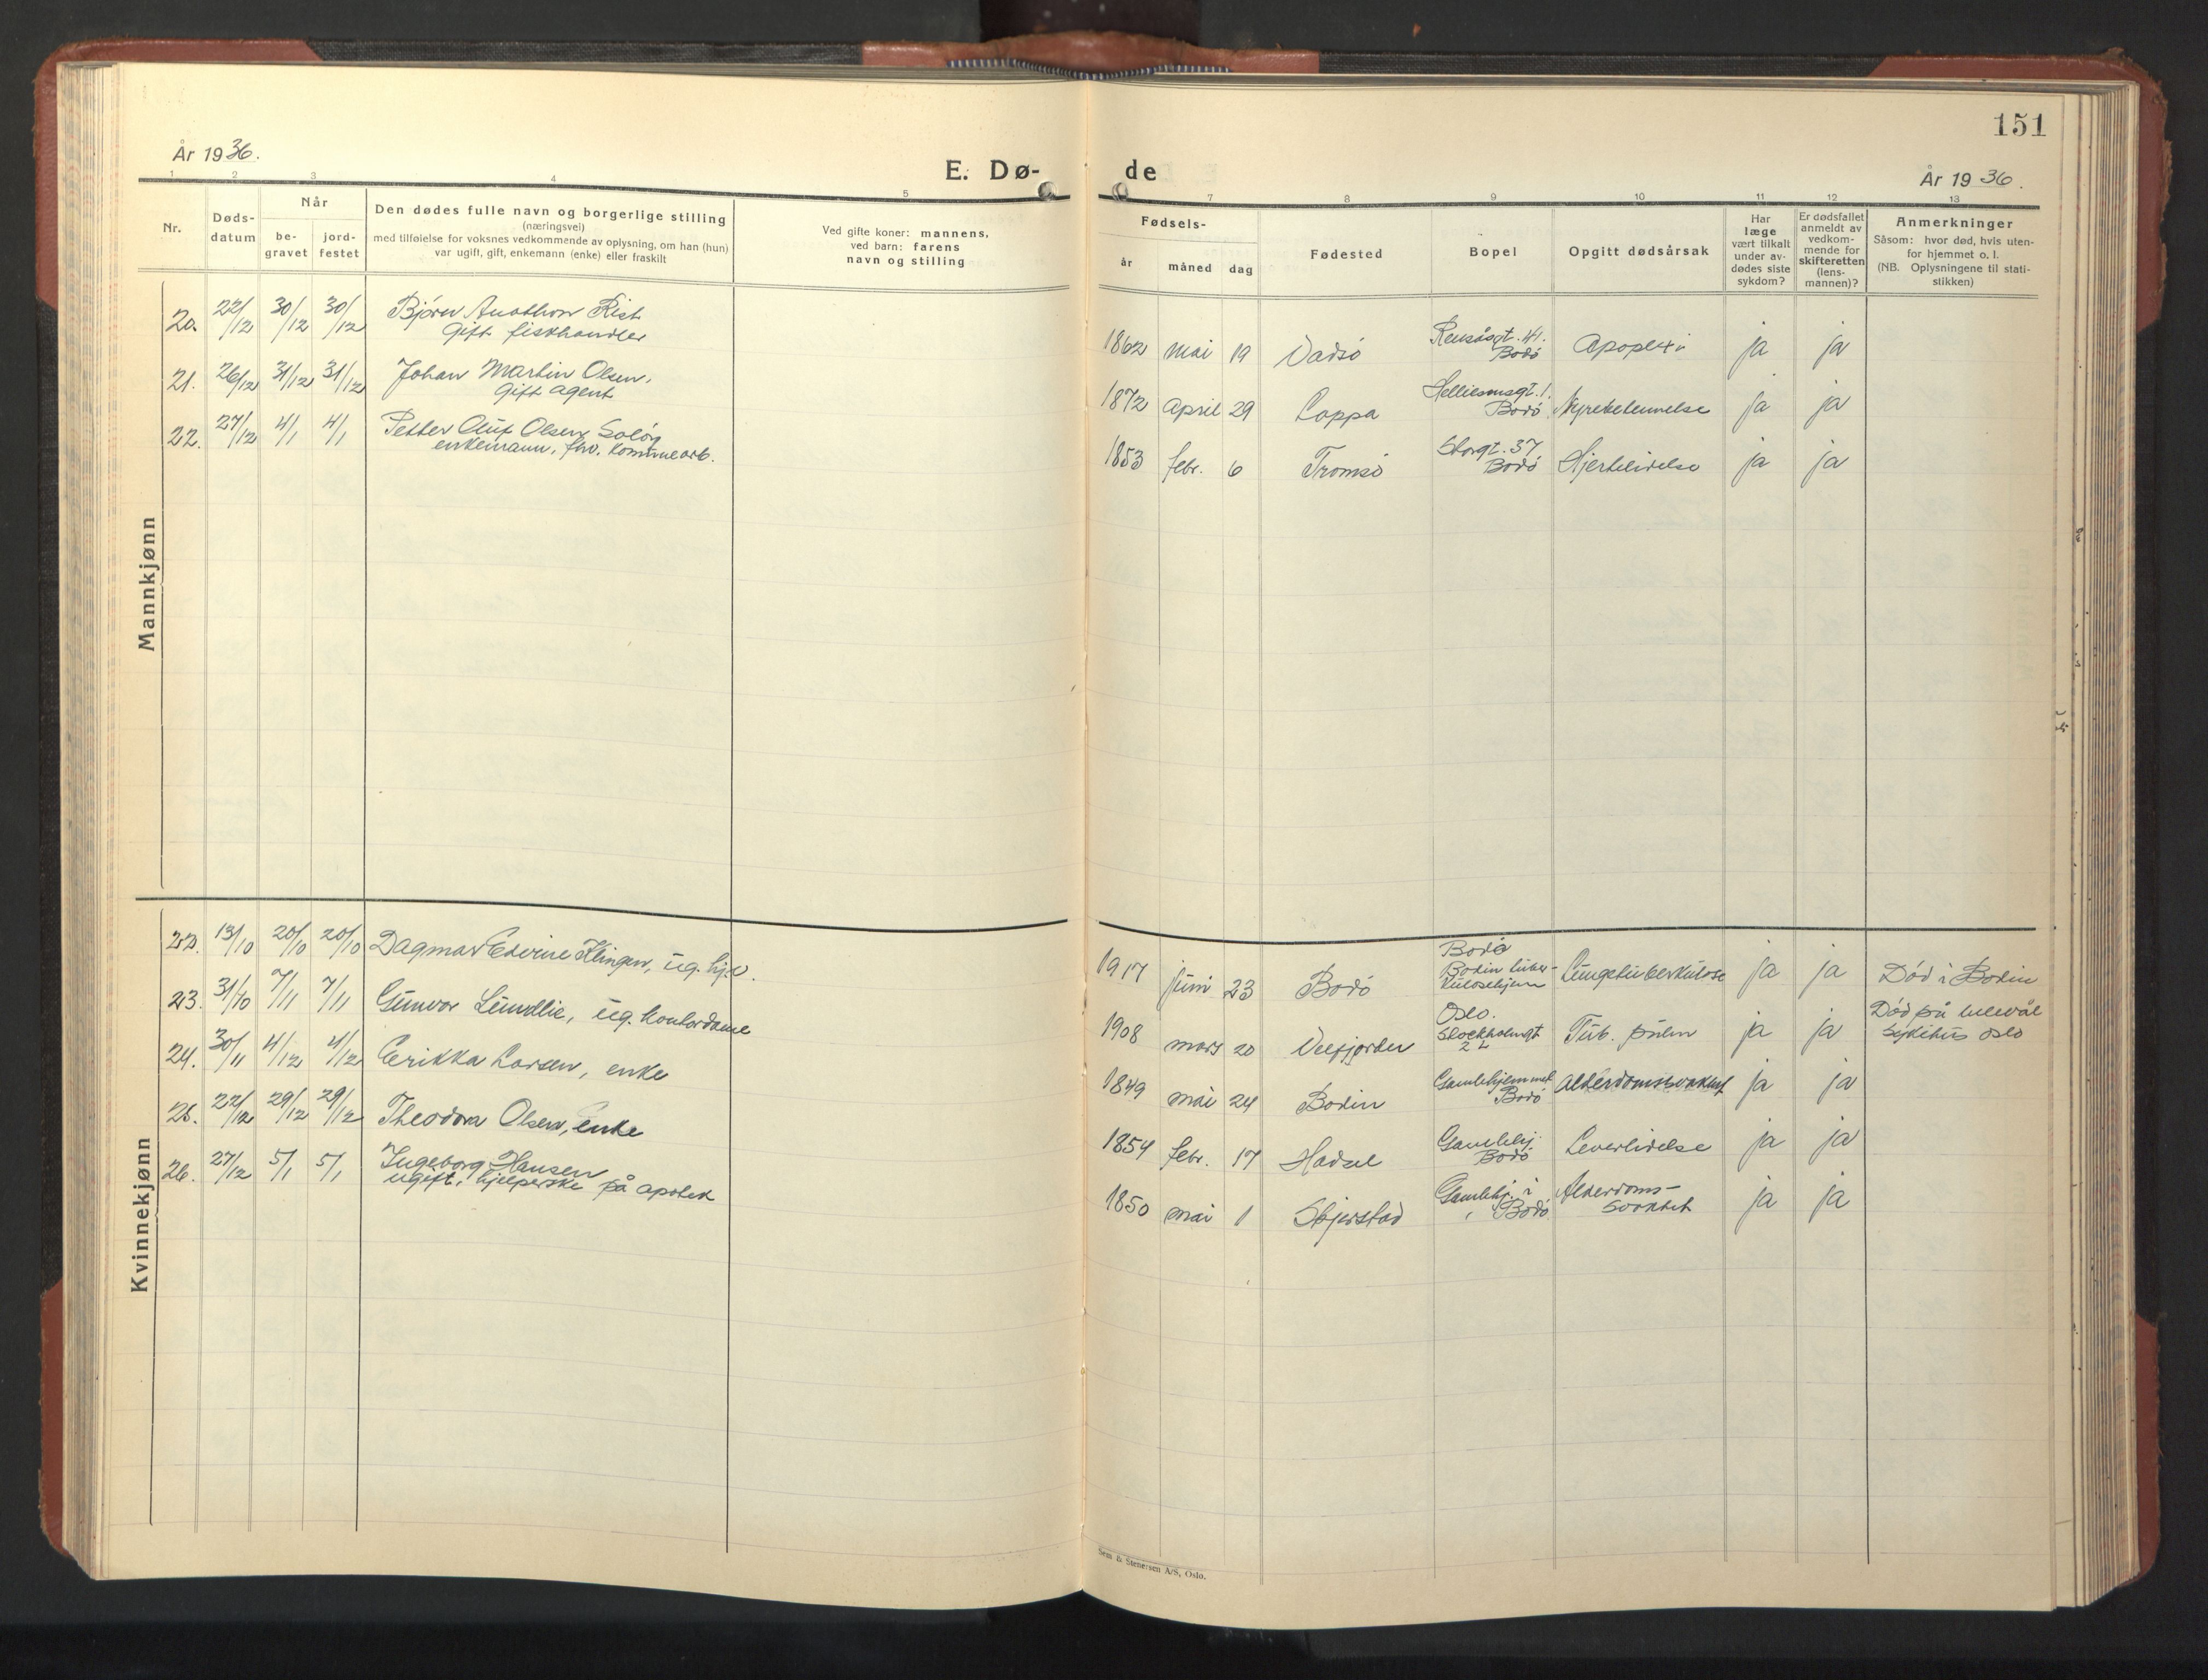 151
År 1936.
E. Dø-
de
År 1936.
1 2 3 4 5 7 8 9 10 11 12 13
Nr.
Døds-
datum
Når
be-
gravet
jord-
festet
Den dødes fulle navn og borgerlige stilling
(næringsvei)
med tilføielse for voksnes vedkommende av oplysning, om han (hun)
var ugift, gift, enkemann (enke) eller fraskilt
Ved gifte koner: mannens,
ved barn: farens
navn og stilling
Fødsels-
år
måned
dag
Fødested
Bopel
Opgitt dødsårsak
Har
læge
vært tilkalt
under av-
dødes siste
sykdom?
Er dødsfallet
anmeldt av
vedkom-
mende for
skifteretten
(lens-
mannen)?
Anmerkninger
Såsom: hvor død, hvis uten-
for hjemmet o. l.
(NB. Oplysningene til stati-
stikken)
Mannkjønn
20. 22/12 30/12 30/12 Bjørn Rist
Gift fiskhandler
1862 mai 19 Vadsö Rensåsgt. 41. Bodö Apoplexi ja ja
21. 26/12 31/12 31/12 Johan Martin Olsen,
Gift agent
1872 April 29 Loppa Helliesensgt. 1. Bodö Nyrebetennelse ja ja
22. 27/12 4/1 4/1 Petter Oluf Olsen Solöy
enkemann, fhv. kommunearb.
1853 febr. 6 Tromsö Storgt. 37 Bodö Hjertelidelse ja ja
Kvinnekjønn
22. 13/10 20/10 20/10 Dagmar Edvine Klingen, ug.
1917 juni 23 Bodö Bodö Bodin tuber-
kulosehjem Lungetuberkulose ja ja Död i Bodin
23. 31/10 7/11 7/11 Gunvor Lundlie, ug. kontordame
1908 mars 20 Velfjorden Oslo. Stockholmgt 2 L Tub. pulm ja ja Död på Ullevål
sykehus Oslo
24. 30/11 4/12 4/12 Erikka Larsen, enke
1849 mai 24 Bodin Gamlehjemmet Bodö Alderdomssvakhet ja ja
25. 22/12 29/12 29/12 Theodora Olsen, enke
1854 febr. 17 Hadsel Gamlehj. Bodö Leverlidelse ja ja
26. 27/12 5/1 5/1 Ingeborg Hansen
ugift, hjelperske på apotek
1850 mai 1 Skjerstad Gamlehj. i Bodö Alderdoms-
svakhet ja ja
Sem & Stenersen A/S, Oslo.